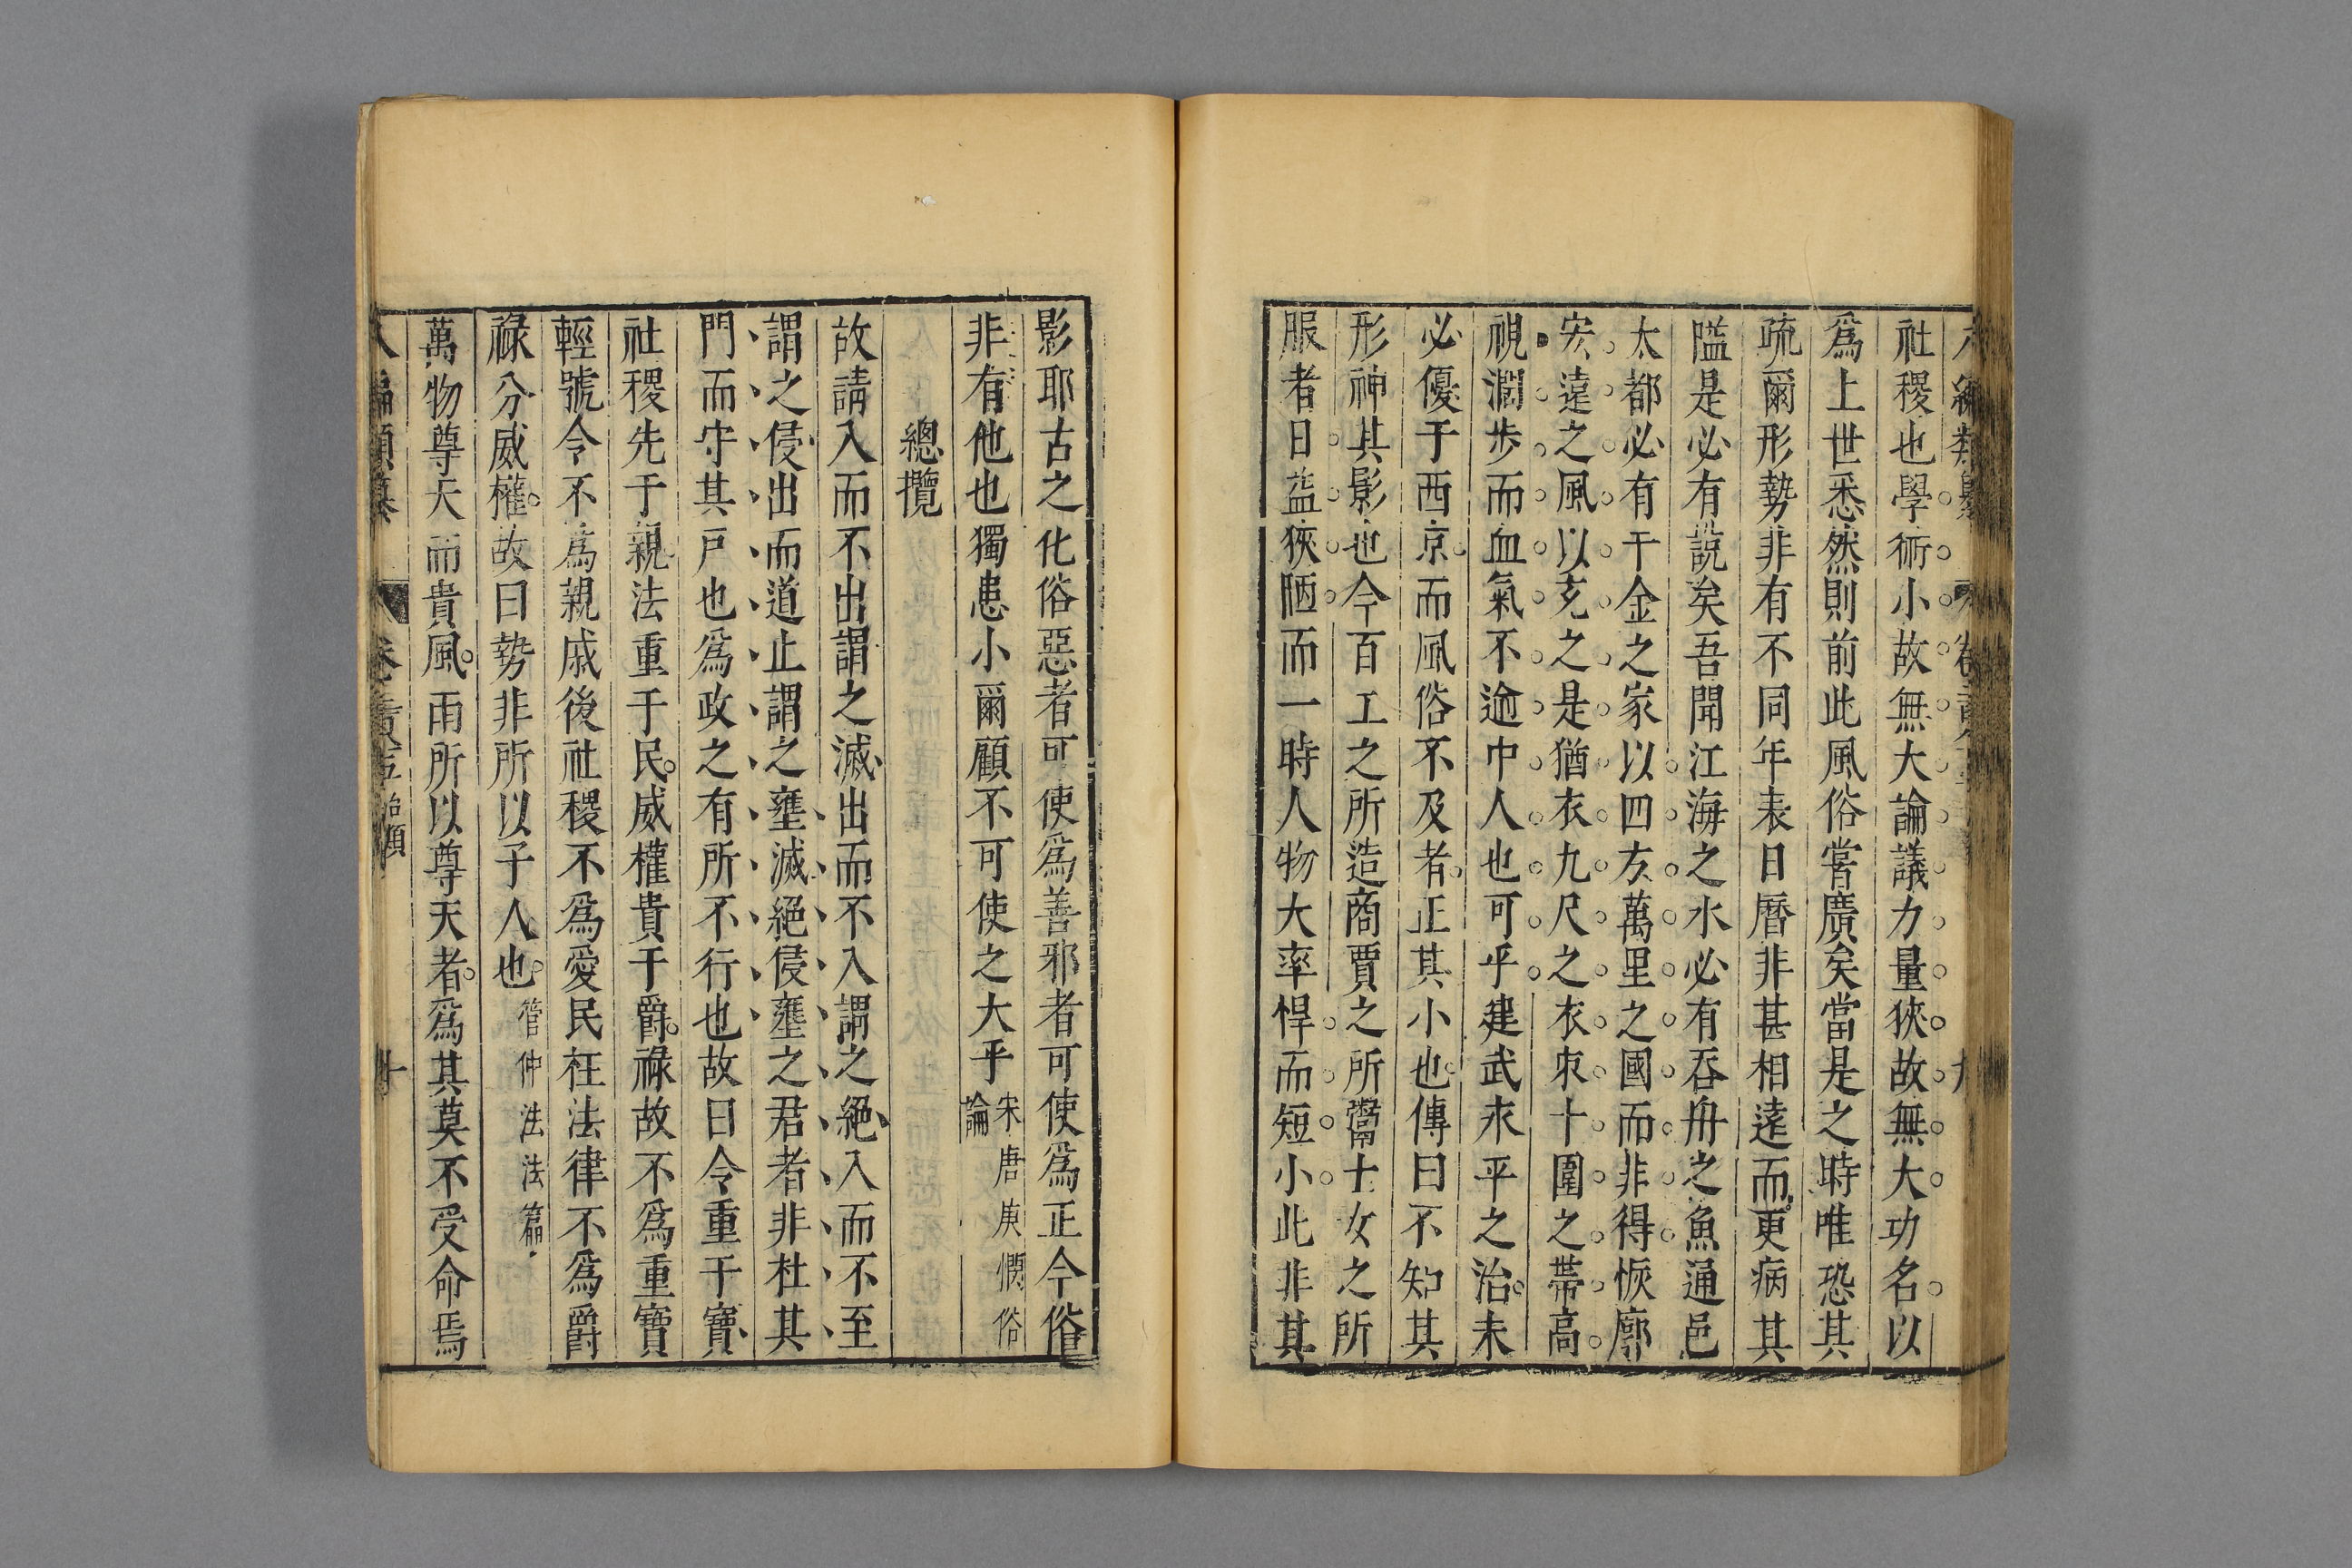 社稷也學術小故無大論議力量狹故無大功名以
爲上世悉然則前此風俗嘗廣矣當是之時唯恐其
疏爾形勢非有不同年表日曆非甚相遠而更病其
隘是必有說矣吾聞江海之水必有吞舟之魚通邑
太都必有千金之家以四方萬里之國而非得恢廓
宏遠之風以充之是猶衣九尺之衣束十圍之帶高
視濶步而血氣不逾中人也可乎建武永平之治未
必優于西京而風俗不及者正其小也傳曰不知其
形神其影也今百工之所造商賈之所鬻士女之所
服者日益狹陋而一時人物大率悍而短小此非其
影耶古之化俗惡者可使爲善邪者可使爲正今俗
非有他也獨患小爾顧不可使之大乎宋唐庚憫俗論
總攬
故請入而不出謂之滅出而不入謂之絕入而不至
謂之侵出而道止謂之壅滅絕侵壅之君者非杜其
門而守其戸也爲政之有所不行也故曰令重于寶
社稷先于親法重于民威權貴于爵祿故不爲重寶
輕號令不爲親戚後社稷不爲愛民枉法律不爲爵
祿分威權故曰勢非所以予人也管仲法法篇
萬物尊天而貴風雨所以尊天者爲其莫不受命焉